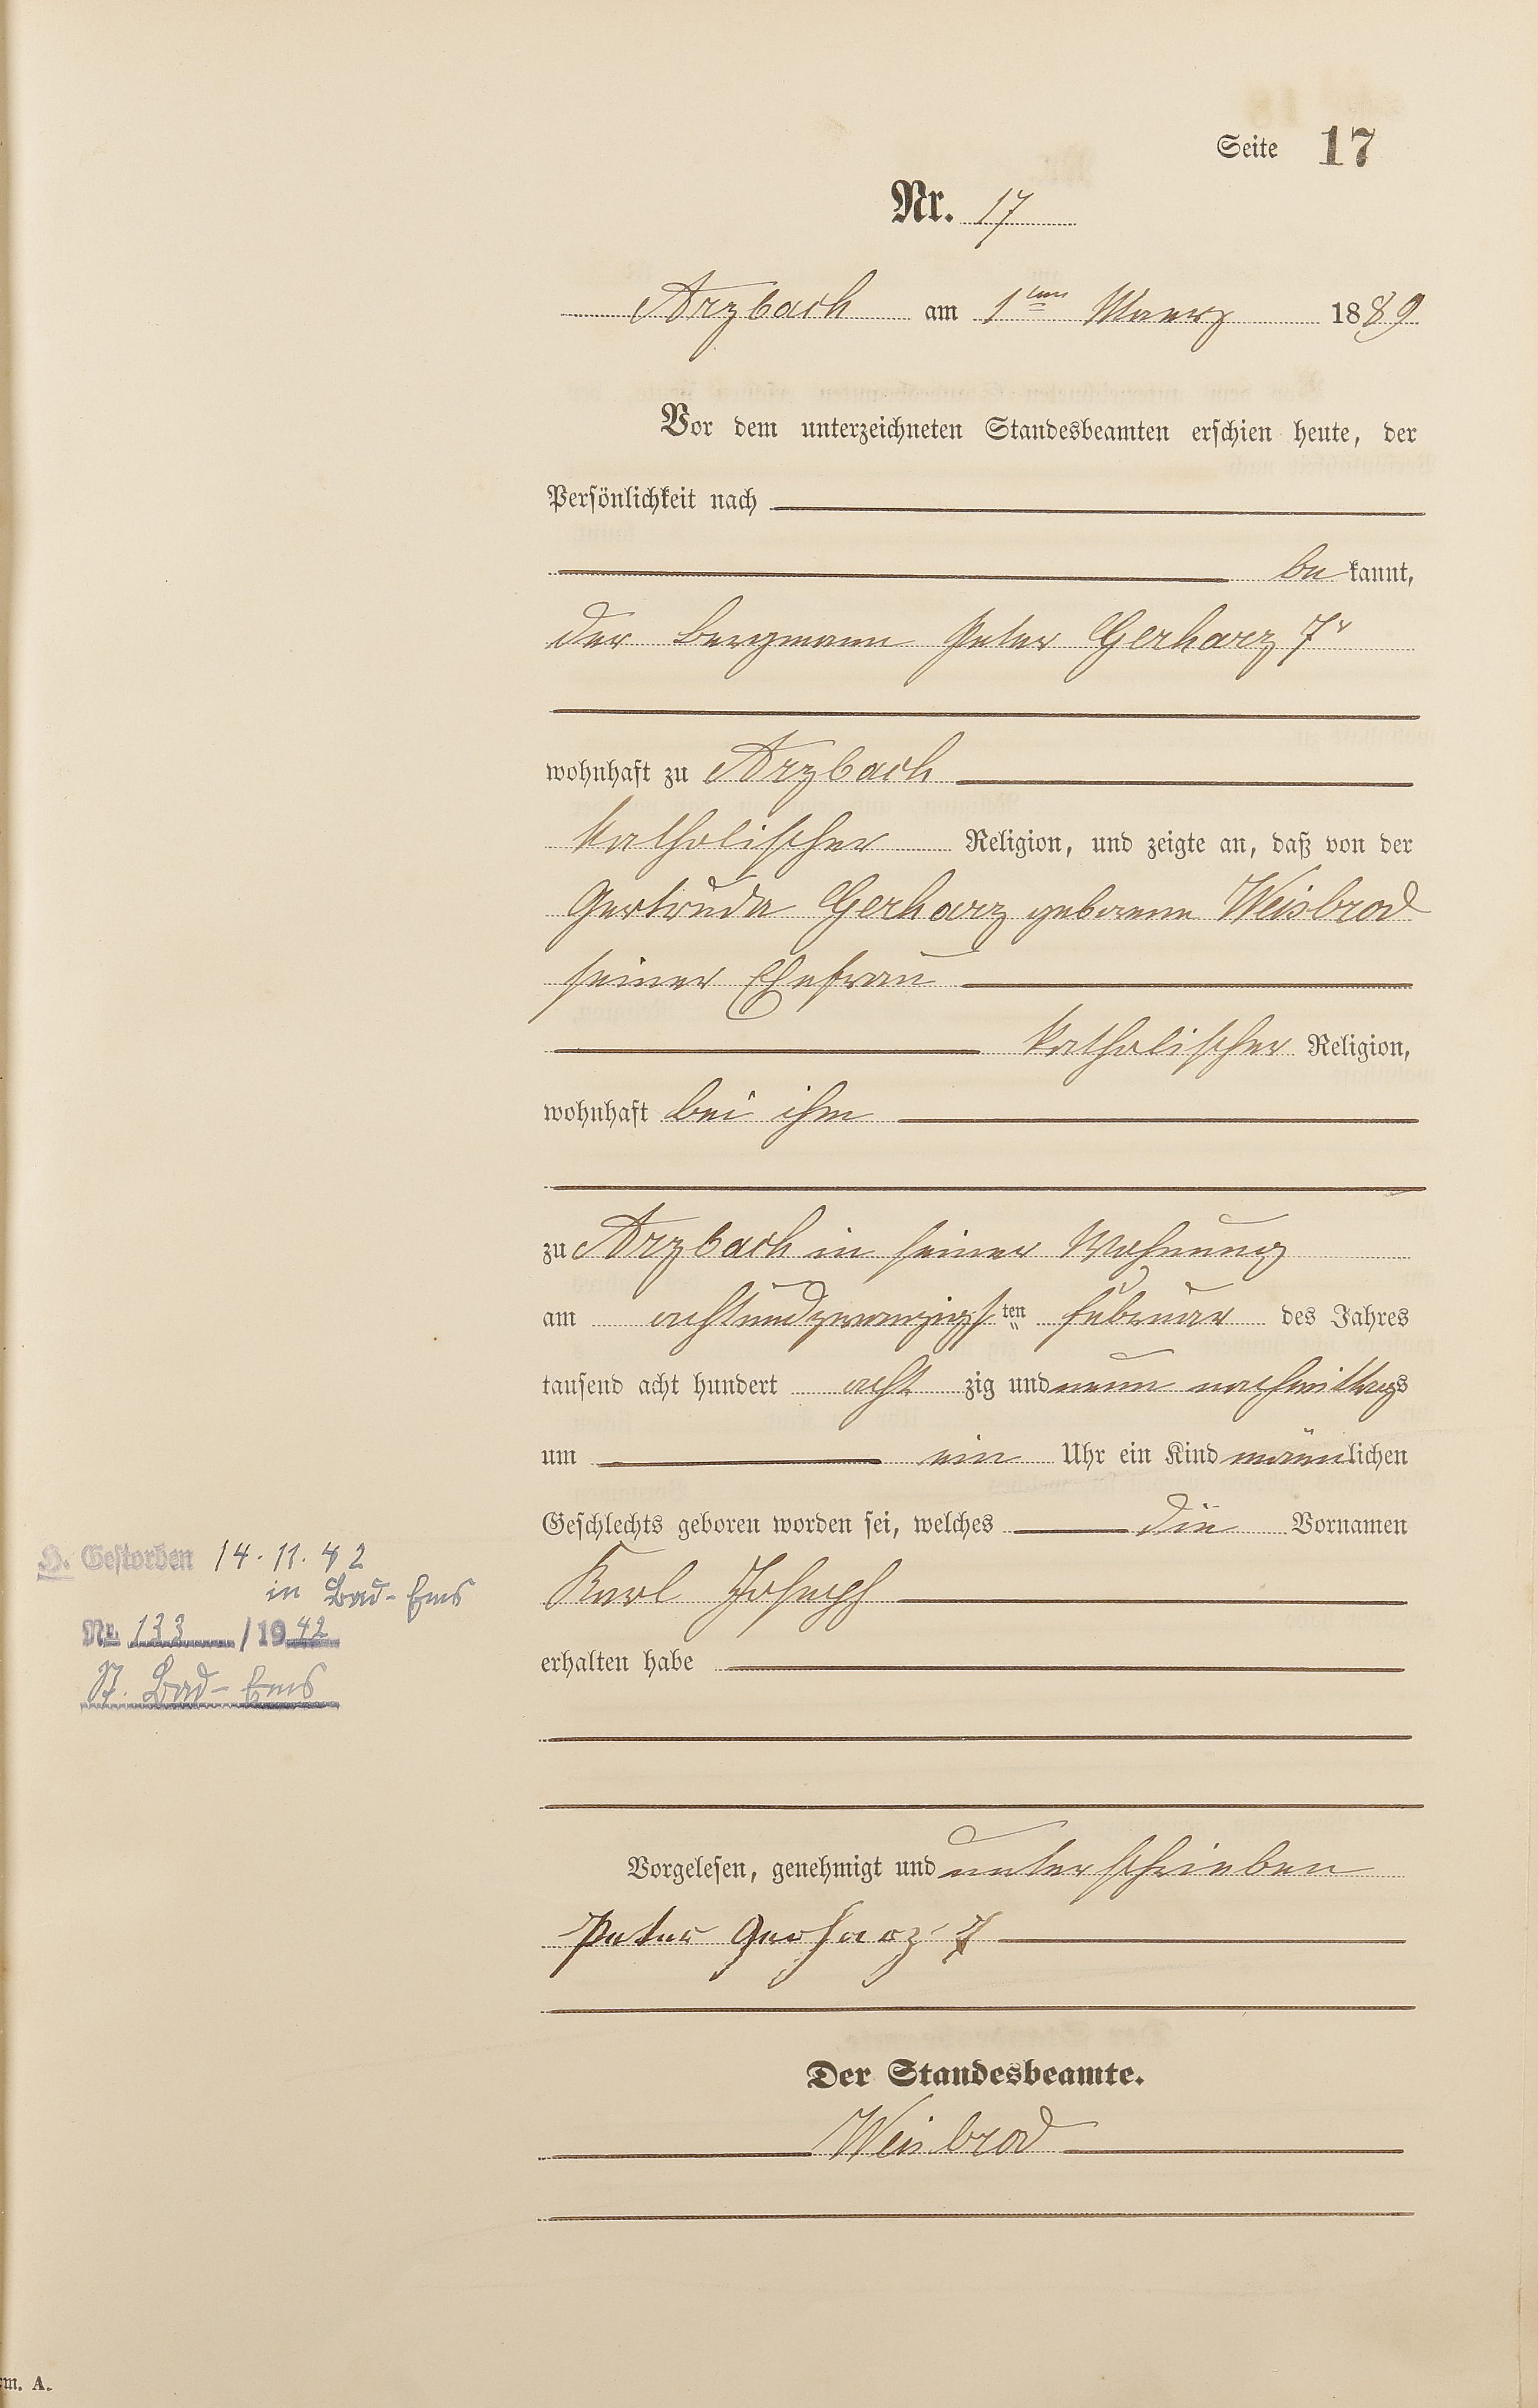 Seite 17
Nr. 17
Arzbach am 1ten Maerz 1889
Vor dem unterzeichneten Standesbeamten erschien heute, der
Persönlichkeit nach
be kannt,
der Bergmann Peter Gerharz 7r
wohnhaft zu Arzbach
katholischer Religion, und zeigte an, daß von der
Gertruda Gerharz geborene Weisbrod
seiner Ehefrau
katholischer Religion,
wohnhaft bei ihm
zu Arzbach in seiner Wohnung
am achtundzwanzigsten Februar des Jahres
tausend acht hundert acht zig und neun nachmittags
um ein Uhr ein Kind männlichen
Geschlechts geboren worden sei, welches die Vornamen
Karl Joseph
erhalten habe
H. Gestorben 14.11.42
in Bad-Ems
Nr. 133 / 1942
St. Bad-Ems
Vorgelesen, genehmigt und unterschrieben
Peter Gerharz 7
Der Standesbeamte.
Weisbrod
rm. A.